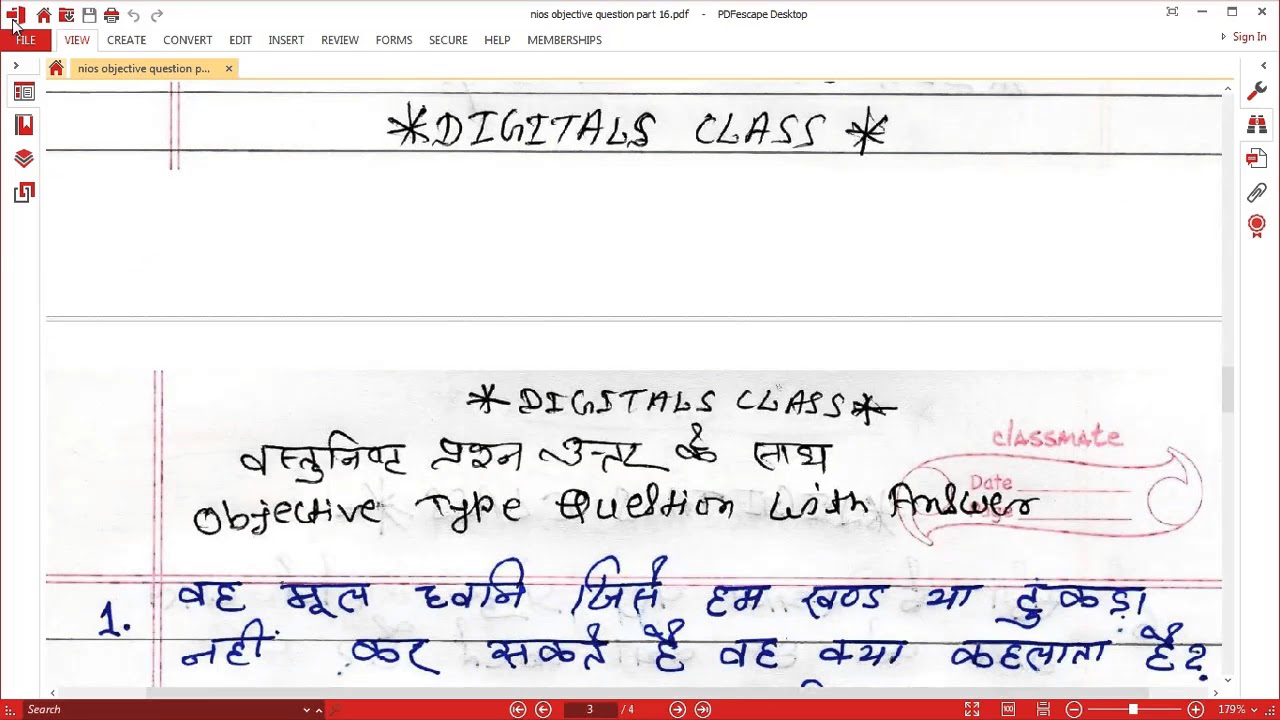 nios objective question part 16.pdf - PDFescape Desktop
FILE VIEW CREATE CONVERT EDIT INSERT REVIEW FORMS SECURE HELP MEMBERSHIPS Sign In
nios objective question p...
*DIGITALS CLASS*
*DIGITALS CLASS*
classmate
वस्तुनिष्ट प्रश्न उत्तर के साथ
Date
Objective Type Question with Answer
1. वह मूल ध्वनि जिसे हम खण्ड या टुकड़ा
नहीं कर सकते हैं वह क्या कहलाता है?
Search 3 / 4 179%